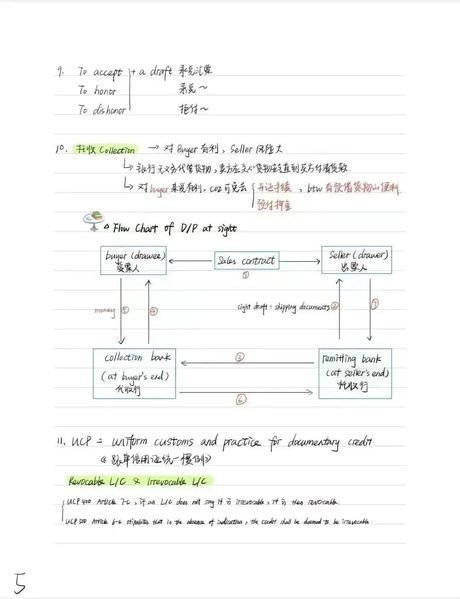 9. To accept + a draft 承兑汇票
To honor 承兑~
To dishonor 拒付~
10. 托收 Collection → 对 Buyer 有利, Seller 风险大
↳ 银行无义务代管货物, 卖方应关心货物安全直到买方付清货款
↳ 对 buyer 来说有利, coz 可免去 开证手续, btw 有预借货物的便利
预付押金
△ Flow Chart of D/P at sight
buyer (drawee)
受票人
Sales contract
①
Seller (drawer)
出票人
money
⑤
④
sight draft + shipping documents
②
collection bank
(at buyer's end)
代收行
③
⑥
remitting bank
(at seller's end)
托收行
11. UCP = uniform customs and practice for documentary credit
《跟单信用证统一惯例》
Revocable L/C & Irrevocable L/C
UCP 400 Article 7-C, if an L/C does not say it is irrevocable, it is then revocable.
UCP 500 Article 6-C stipulates that in the absence of indication, the credit shall be deemed to be irrevocable
5